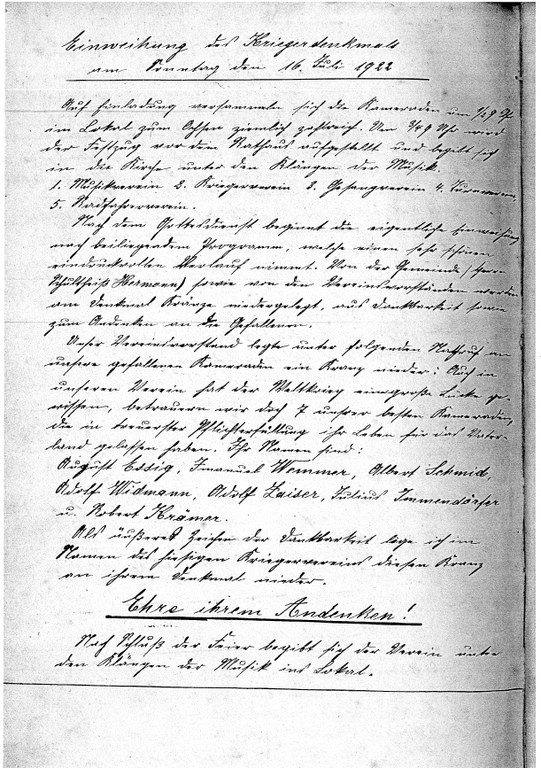 Einweihung des Kriegerdenkmals
am Sonntag den 16. Juli 1922
Auf Einladung versammeln sich die Kameraden um 1/2 9 Uhr
im Lokal zum Ochsen ziemlich zahlreich. Um 3/4 9 Uhr wird
der Festzug vor dem Rathaus aufgestellt und begibt sich
in die Kirche unter den Klängen der Musik.
1. Musikverein 2. Kriegerverein 3. Gesangverein 4. Turnverein,
5. Radfahrerverein.
Nach dem Gottesdienst beginnt die eigentliche Einweihung
nach beiliegendem Programm, welche einen sehr schönen
eindrucksvollen Verlauf nimmt. Von der Gemeinde (Herr
Schultheiß Hermann) sowie von den Vereinsvorständen werden
am Denkmal Kränze niedergelegt, aus Dankbarkeit sowie
zum Andenken an die Gefallenen.
Unser Vereinsvorstand legte unter folgendem Nachruf an
unsere gefallenen Kameraden ein Kranz nieder: Auch in
unseren Verein hat der Weltkrieg eine große Lücke ge-
rissen, betrauern wir doch 7 unsrer besten Kameraden,
die in treuester Pflichterfüllung ihr Leben für das Vater-
land gelassen haben. Ihr Namen sind:
August Essig, Imanuel Wemmer, Albert Schmid,
Adolf Widmann, Adolf Zaiser, Julius Immendörfer
u. Robert Krämer.
Als äußeres Zeichen der Dankbarkeit lege ich im
Namen des hiesigen Kriegervereins diesen Kranz
an ihrem Denkmal nieder.
Ehre ihrem Andenken!
Nach Schluß der Feier begibt sich der Verein unter
den Klängen der Musik ins Lokal.